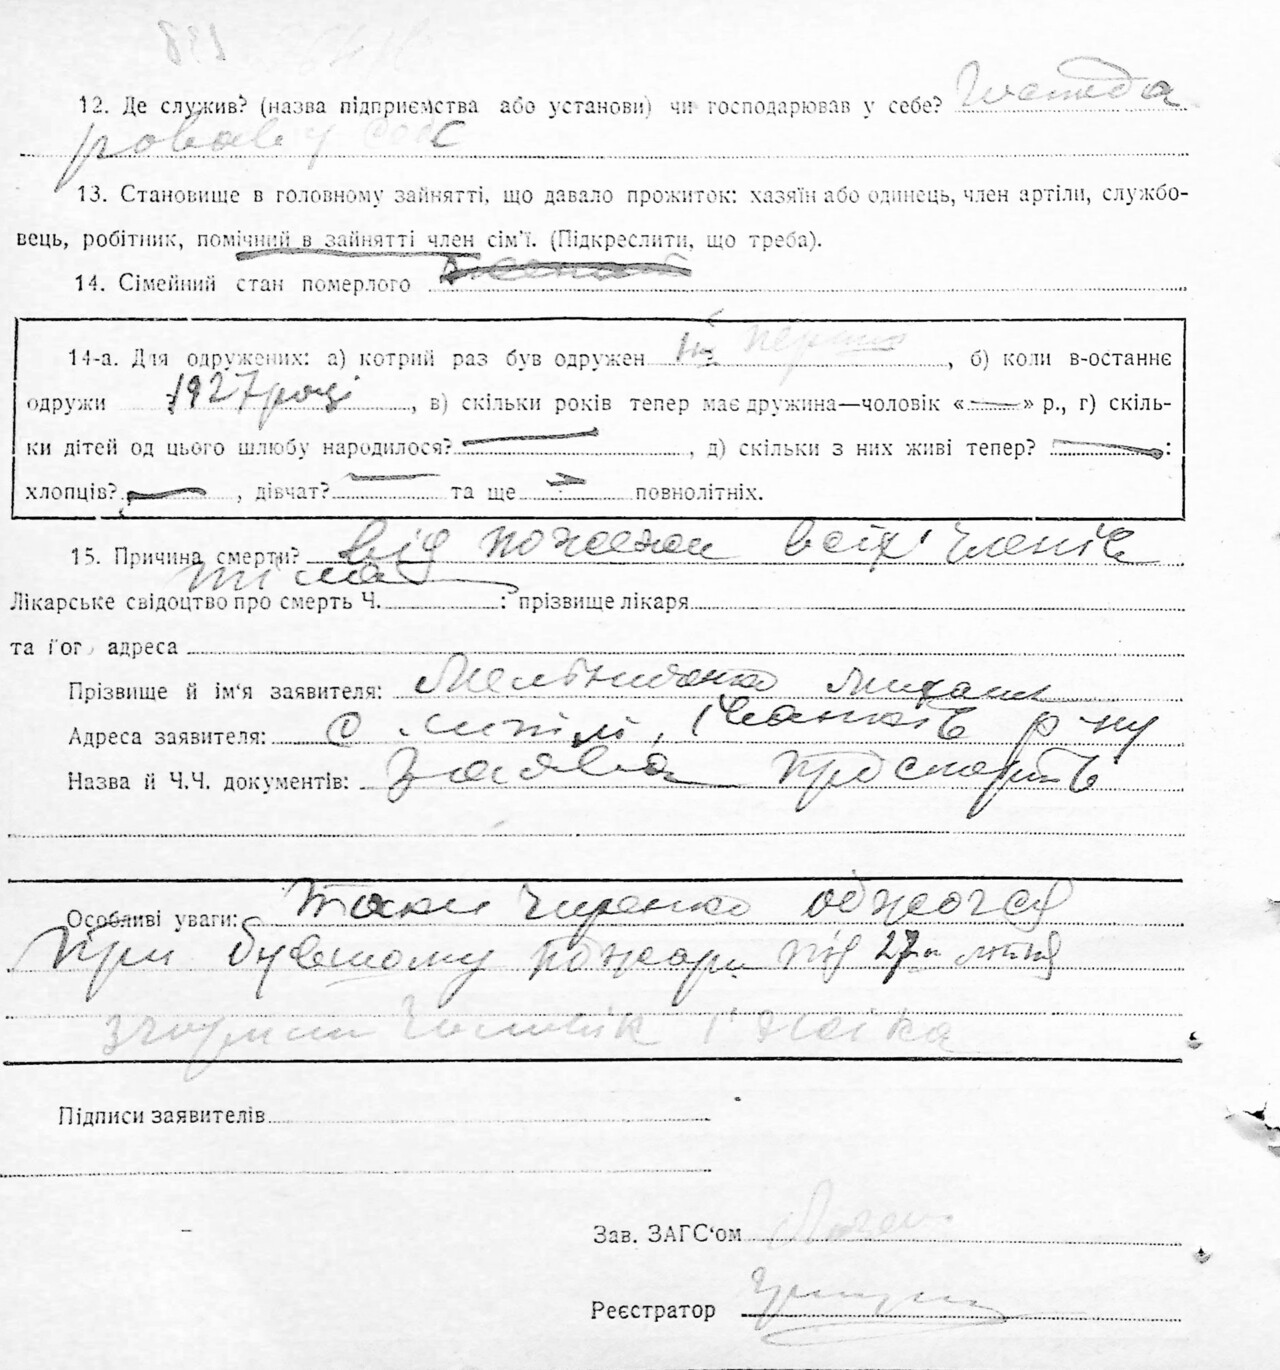 12. Де служив? (назва підприємства або установи) чи господарював у себе? Господа
ровав у себе
13. Становище в головному зайнятті, що давало прожиток: хазяїн або одинець, член артіли, службо-
вець, робітник, помічний в зайнятті член сім'ї. (Підкреслити, що треба).
14. Сімейний стан померлого
14-а. Для одружених: а) котрий раз був одружен перший, б) коли в-останнє
одружи 1927 році, в) скільки років тепер має дружина—чоловік «—» р., г) скіль-
ки дітей од цього шлюбу народилося? —, д) скільки з них живі тепер? —:
хлопців? —, дівчат? — та ще — повнолітніх.
15. Причина смерти? від пожежи всіх членів
тіла
Лікарське свідоцтво про смерть Ч. : прізвище лікаря
та його адреса
Прізвище й ім'я заявителя: Мельниченко Михайло
Адреса заявителя: с. р-ну
Назва й Ч.Ч. документів: заява про смерть
Особливі уваги: обжогся
При бувшому пожари під 27 липня
чоловік і жінка
Підписи заявителів
Зав. ЗАГС'ом
Реєстратор